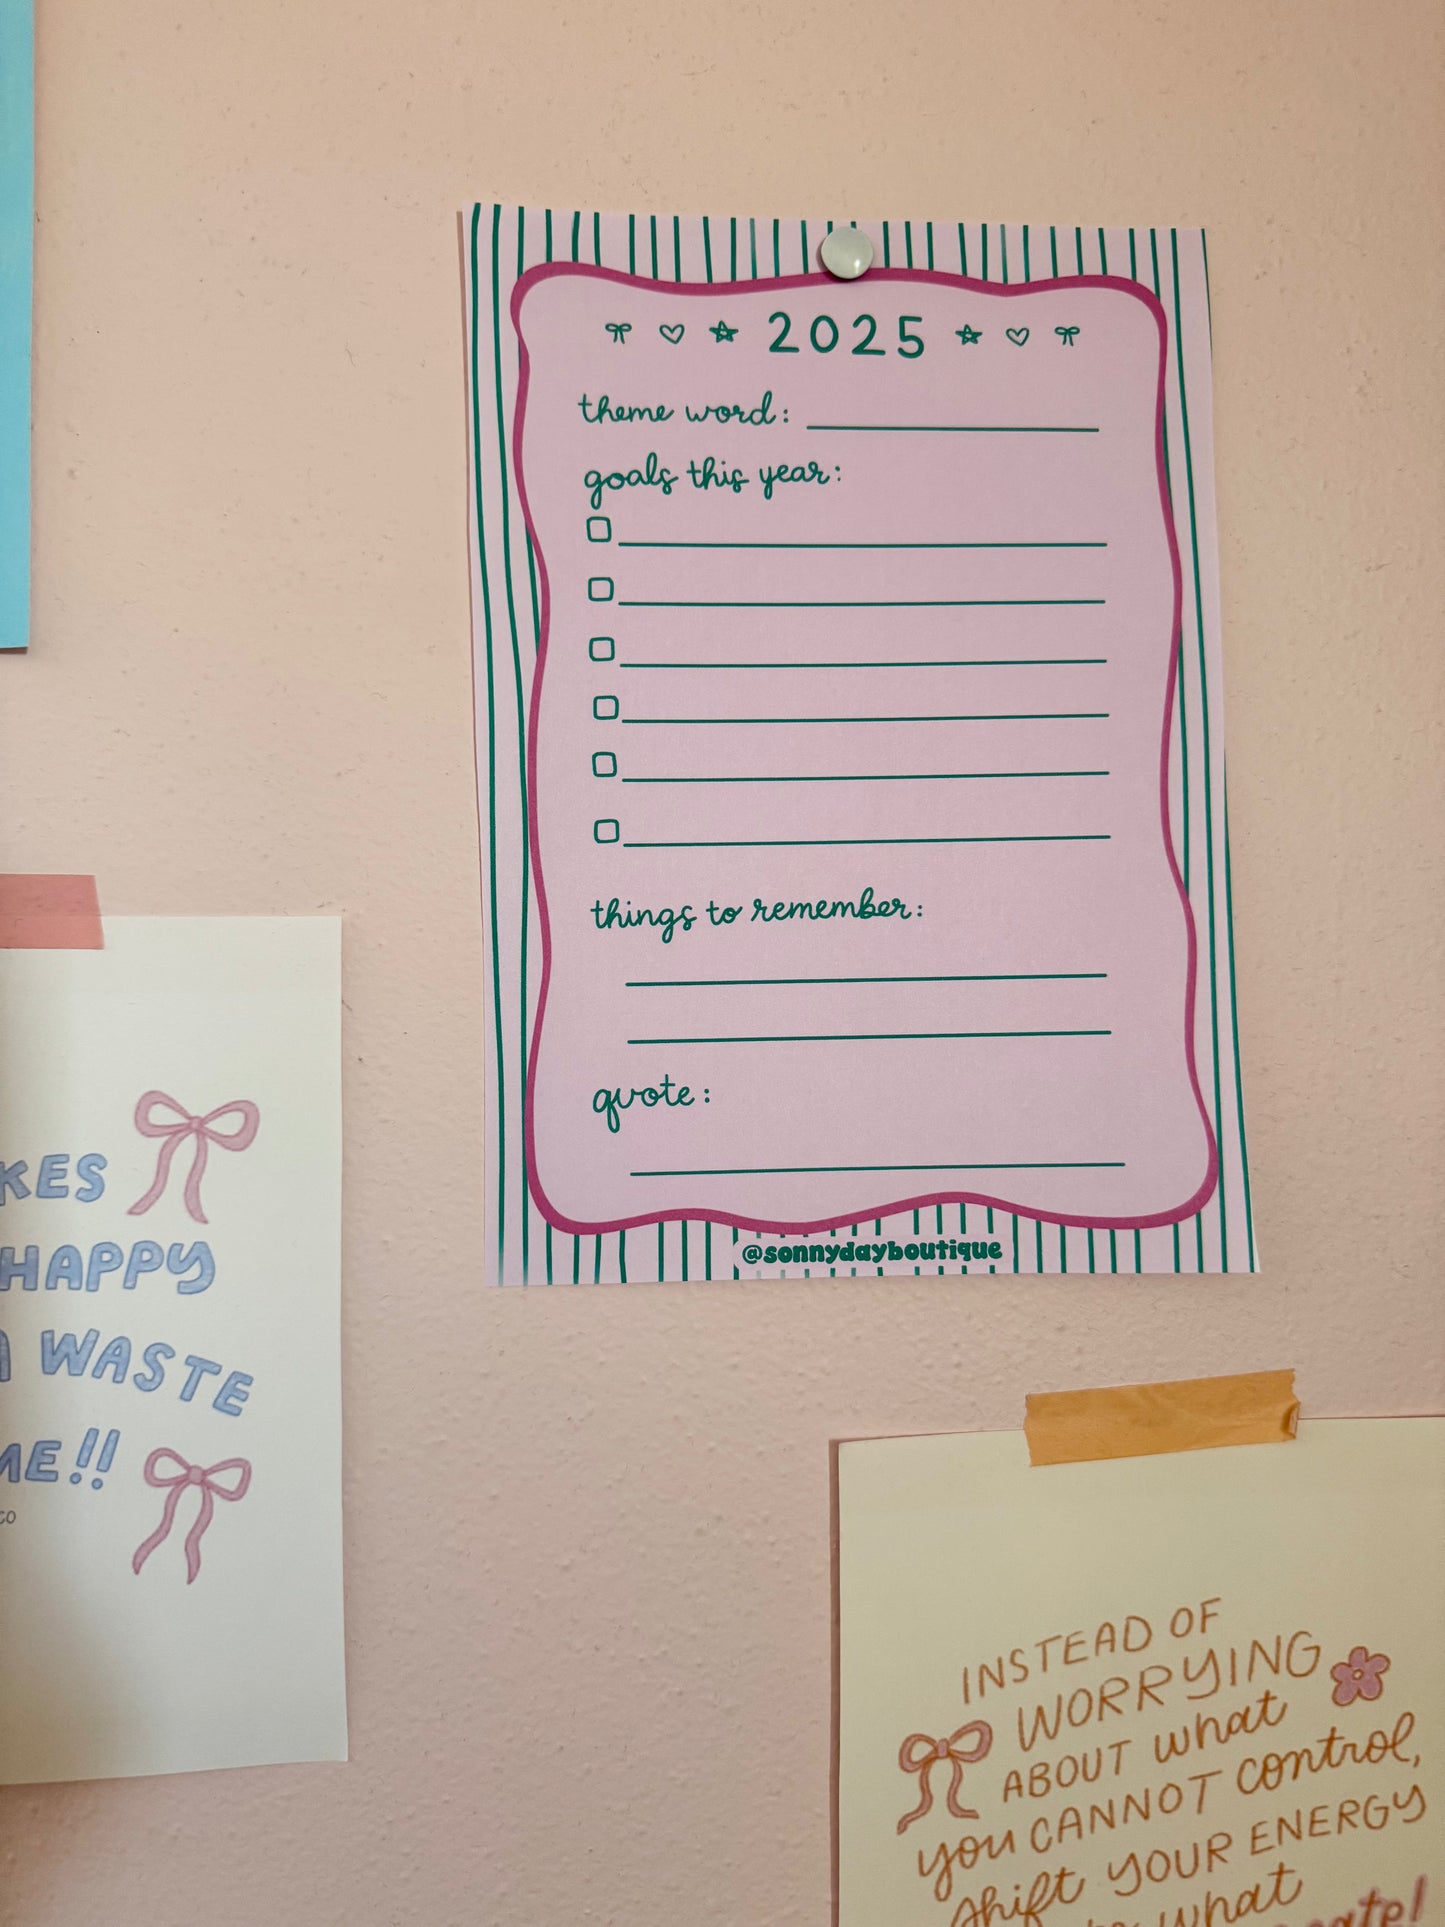 2025
theme word:
goals this year:
things to remember:
quote:
@sonnydayboutique
HAPPY
WASTE
INSTEAD OF
WORRYING
ABOUT what
you CANNOT control,
shift YOUR ENERGY
what